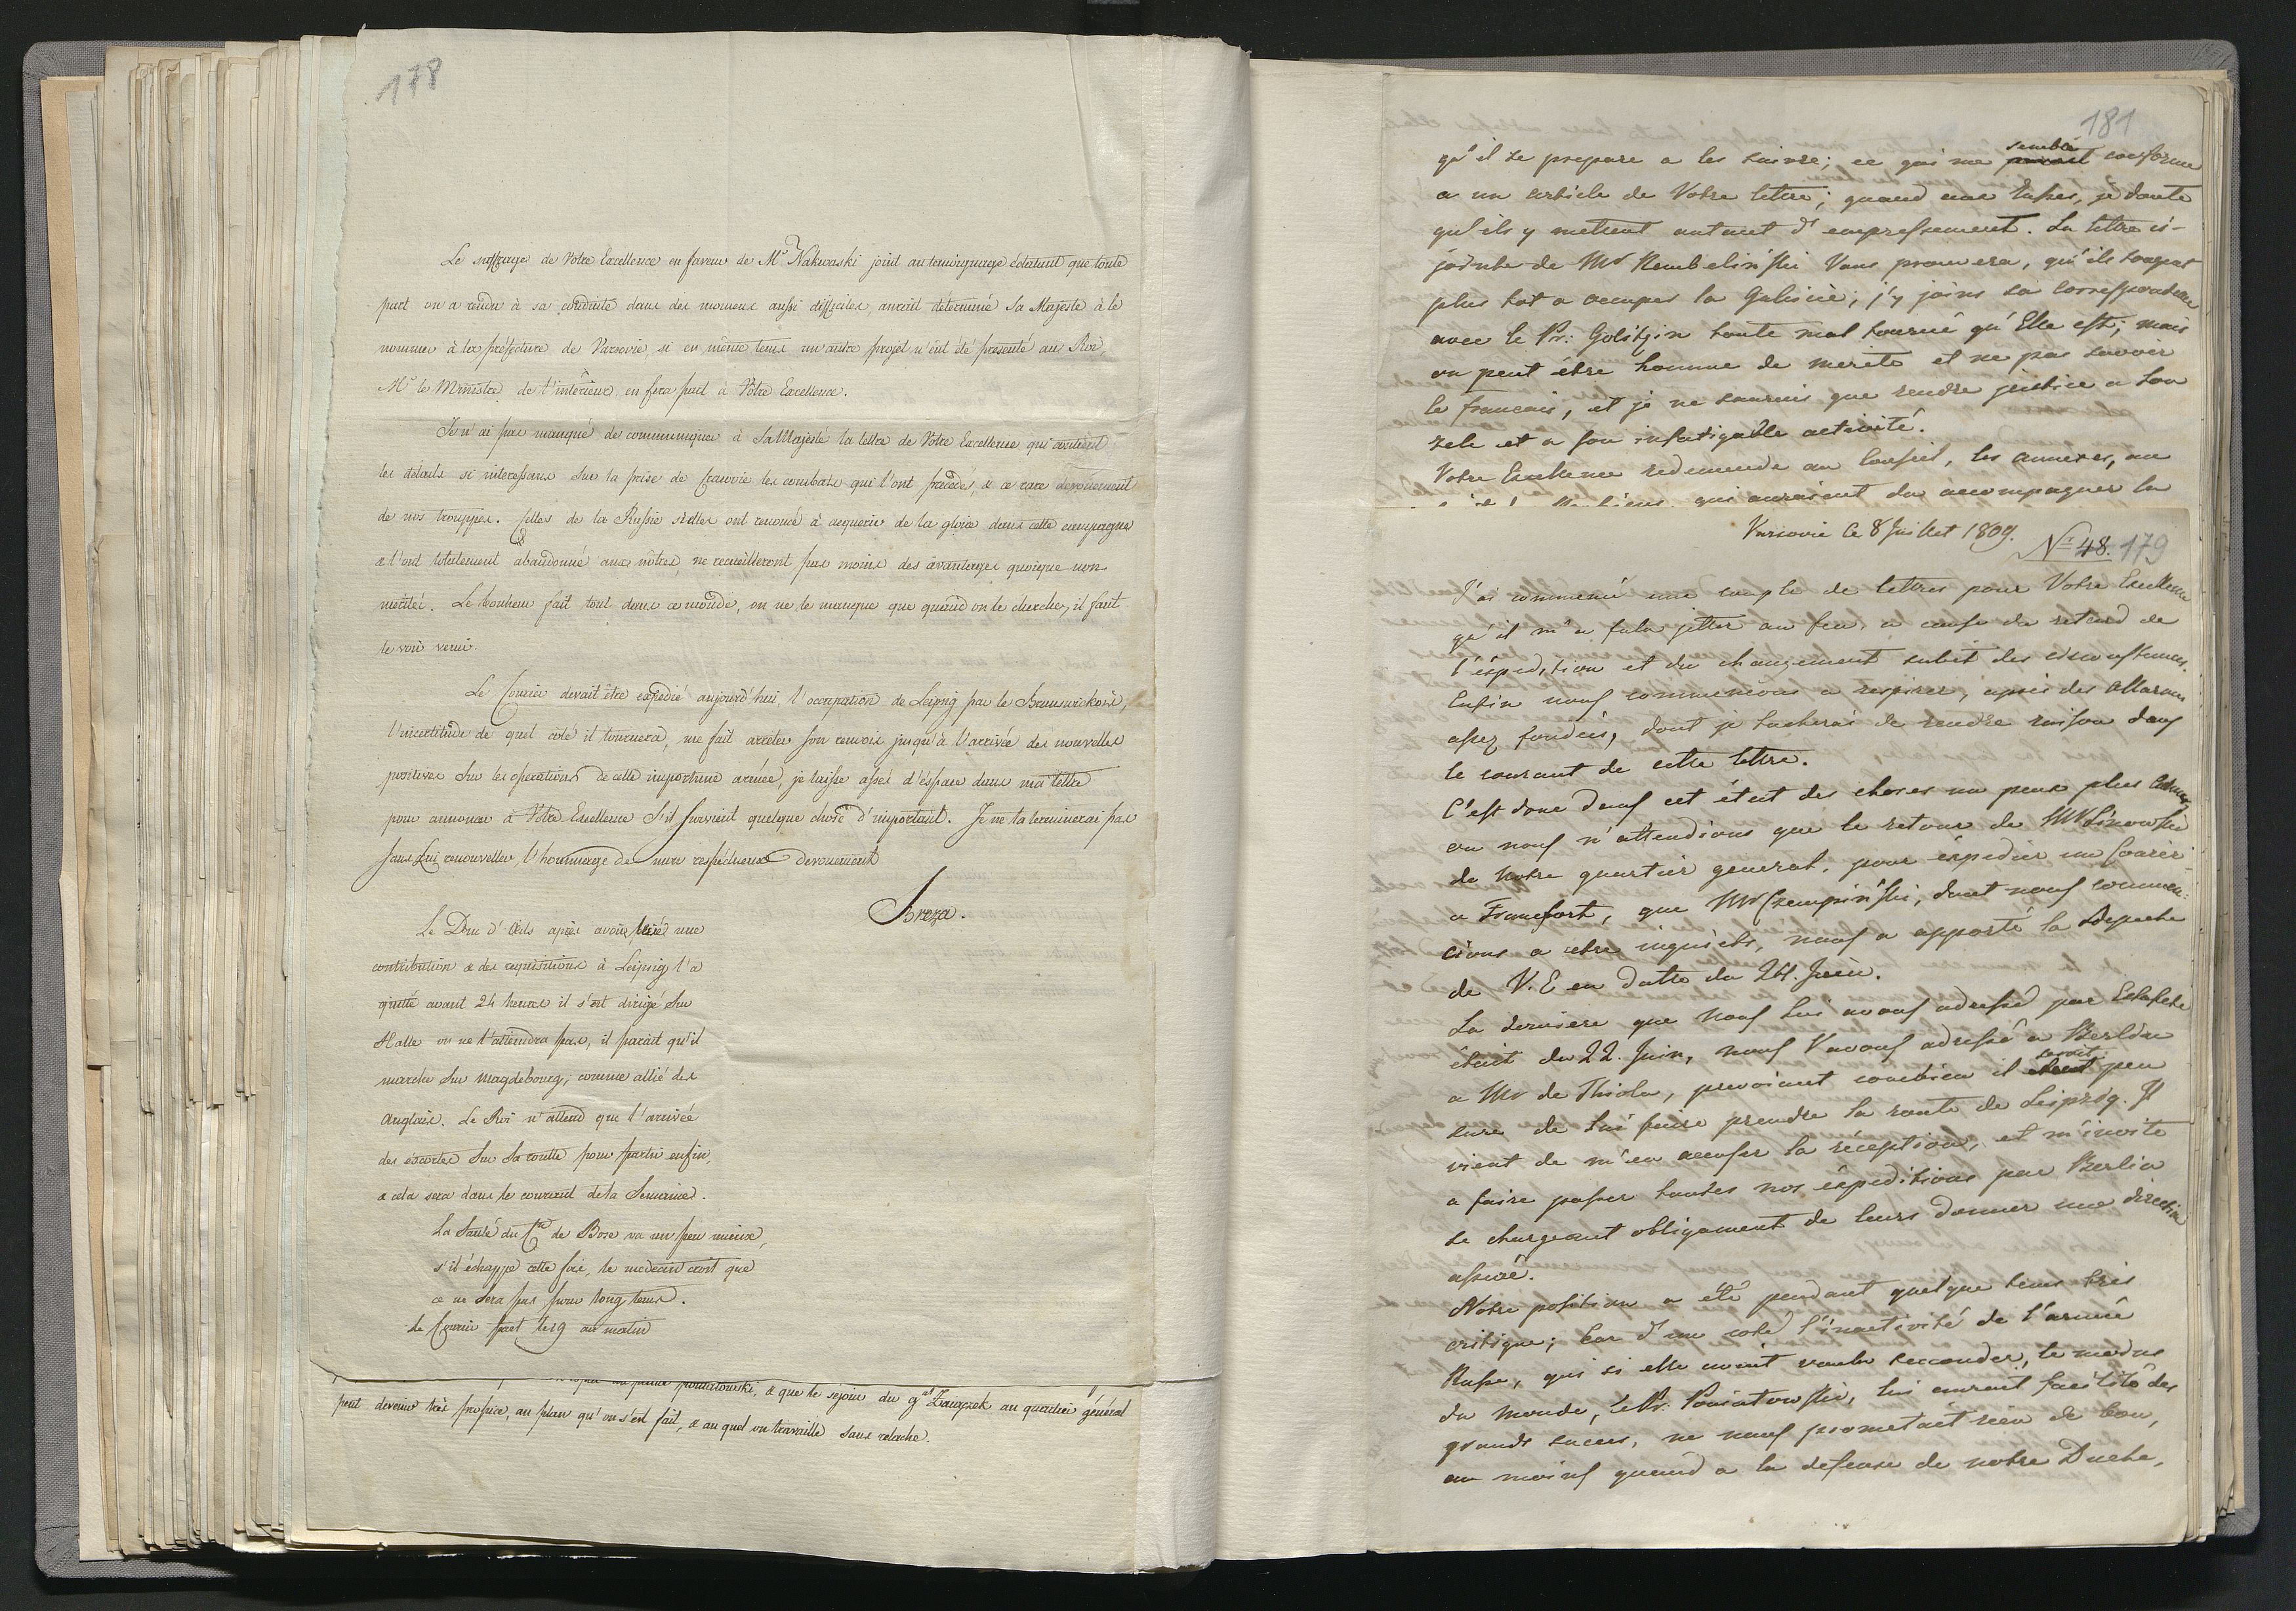 178
Le suffrage de Votre Excellence en faveur de Mr Nakwaski joint au temoignage éclatant que toute
part on a rendu à sa conduite dans des momens aussi difficiles, aurait determiné Sa Majesté à le
nommer à la préfecture de Varsovie, si en même tems un autre projet n'eut été presenté au Roi,
Mr le Ministre de l'interieur en fera part à Votre Excellence.
Je n'ai pas manqué de communiquer à Sa Majesté la lettre de Votre Excellence qui contient
les détails si interessans sur la prise de Cracovie les combats qui l'ont précédé, & ce rare devouement
de nos trouppes. Celles de la Russie si elles ont renoncé à acquerir de la gloire dans cette campagne
& l'ont totalement abandonné aux nôtres, ne recueilleront pas moins des avantages quoique non
mérités. Le bonheur fait tout dans ce monde, on ne le manque que quand on le cherche, il faut
le voir venir.
Le Courier devait être expedié aujourd'hui, l'occupation de Leipzig par le Brunswickois,
l'incertitude de quel coté il tournera, me fait arreter son renvoie jusqu'à l'arrivée des nouvelles
positives sur les operations de cette importune armée, je laisse assés d'espace dans ma lettre
pour annoncer à Votre Excellence s'il survient quelque chose d'important. Je ne la terminerai pas
sans Lui renouveller l'hommage de mon respectueux devouement
Breza.
Le Duc d'Oels après avoir levé une
contribution & des requisitions à Leipzig l'a
quitté avant 24 heures il s'est dirigé sur
Halle on ne l'atteindra pas, il parait qu'il
marche sur Magdebourg, comme allié des
Anglais. Le Roi n'attend que l'arrivée
des escortes sur sa routte pour partir enfin,
& cela sera dans le courant de la Semaine.
La Santé du Cte de Bose va un peu mieux,
s'il échappe cette fois, le medecin croit que
ce ne sera pas pour long tems.
Le Courier part le 29 au matin
prince Poniatowski, & que le sejour du gal Zaiączek au quartier général
peut devenir très propice, au plan qu'on s'est fait, & au quel on travaille sans relache.
181
qu'il se prepare a les suivre; ce qui me semble conforme
a un article de Votre lettre; quand aux Russes, je doute
qu'ils y mettent autant d'empressement. La lettre ci-
jointe de Mr Rembelinski Vous prouvera, qu'ils songent
plus tot a occuper la Galicie; j'y joins sa correspondence
avec le Pr: Golitzin toute mal tournée qu'Elle est; mais
on peut être homme de merite et ne pas savoir
le francais, et je ne saurais que rendre justice a son
zele et a son infatigable activité.
Votre Excellence redemande au Conseil, les annexes, au
qui auraient du accompagner la
Varsovie le 8 Juillet 1809.
No 48. 179
J'ai commencé une couple de lettres pour Votre Excellence
qu'il m'a falu jetter au feu, a cause du retard de
l'éxpedition et du changement subit des circonstances.
Enfin nous commencons a respirer, après des allarmes
assez fondées, dont je tacherai de rendre raison dans
le courant de cette lettre.
C'est donc dans cet état des choses un peux plus calmes,
ou nous n'attendions que le retour de Mr Linowski
de notre quartier general, pour éxpedier un Courier
a Francfort, que Mr Czempinski, dont nous commen-
cions a etre inquiets, nous a apporté la depeche
de V. E en datte du 26. Juin.
La derniere que nous lui avons adressée par Estafette
était du 22. Juin, nous l'avons adressée a Berlin
a Mr de Thiolaz, prevoiant combien il serait peu
sure de lui faire prendre la route de Leipzig. Il
vient de m'en accuser la réception, et m'invite
a faire passer toutes nos éxpeditions par Berlin
se chargeant obligament de leurs donner une direction
assurée.
Notre position a été pendant quelque tems tres
critique; Car d'un coté l'inactivité de l'armée
Russe, qui si elle avait voulu seconder, le moins
du Monde, le Pr. Poniatowski, lui aurait facilité des
grands succes, ne nous prometait rien de bon,
au moins quand a la defense de notre Duché,